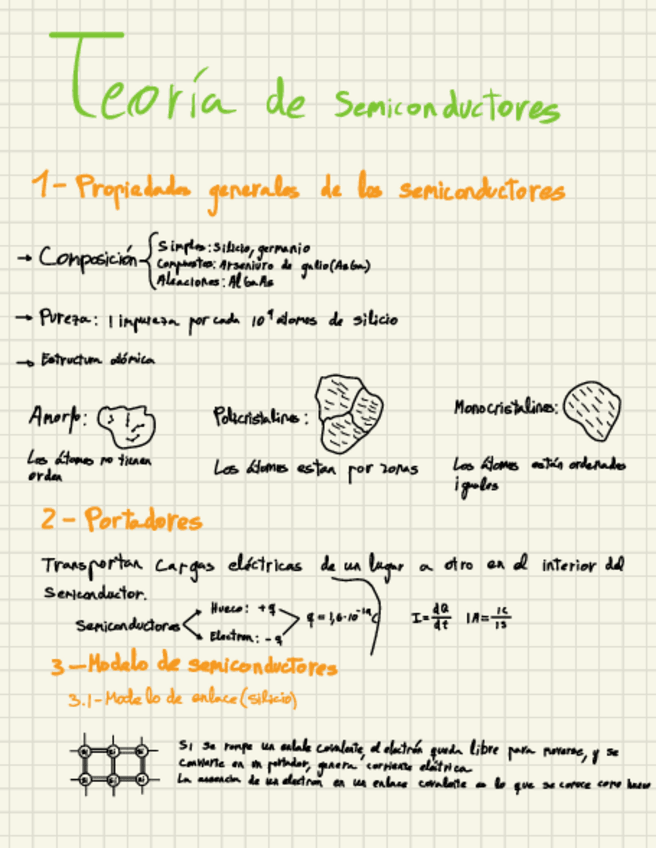 Teoría de Semiconductores
1- Propiedades generales de los semiconductores
→ Composición
Simples: Silicio, germanio
Compuestos: Arseniuro de galio (AsGa)
Aleaciones: AlGaAs
→ Pureza: 1 impureza por cada 10⁹ átomos de silicio
→ Estructura atómica
Amorfo: Policristalinos: Monocristalinos:
Los átomos no tienen orden
Los átomos estan por zonas
Los átomos están ordenados iguales
2- Portadores
Transportan cargas eléctricas de un lugar a otro en el interior del
semiconductor.
Semiconductores
Hueco: +q
Electron: -q
q = 1,6·10⁻¹⁹ C
I = dQ/dt 1A = 1C/1S
3- Modelo de semiconductores
3.1- Modelo de enlace (silicio)
Si Si Si
Si Si Si
Si se rompe un enlace covalente, el electrón queda libre para moverse, y se
convierte en un portador, genera corriente eléctrica
La ausencia de un electron en un enlace covalente es lo que se conoce como hueco